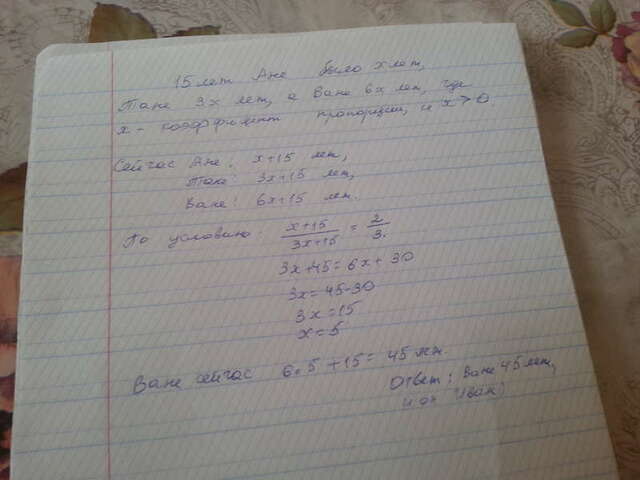 15 лет Ане было x лет,
Тане 3x лет, а Ване 6x лет, где
x - коэффициент пропорции, и x > 0.
Сейчас Ане: x+15 лет,
Тане: 3x+15 лет,
Ване: 6x+15 лет.
По условию: x+15/3x+15 = 2/3.
3x+45=6x+30
3x=45-30
3x=15
x=5
Ване сейчас 6·5+15=45 лет.
Ответ: Ване 45 лет,
и он Иван!